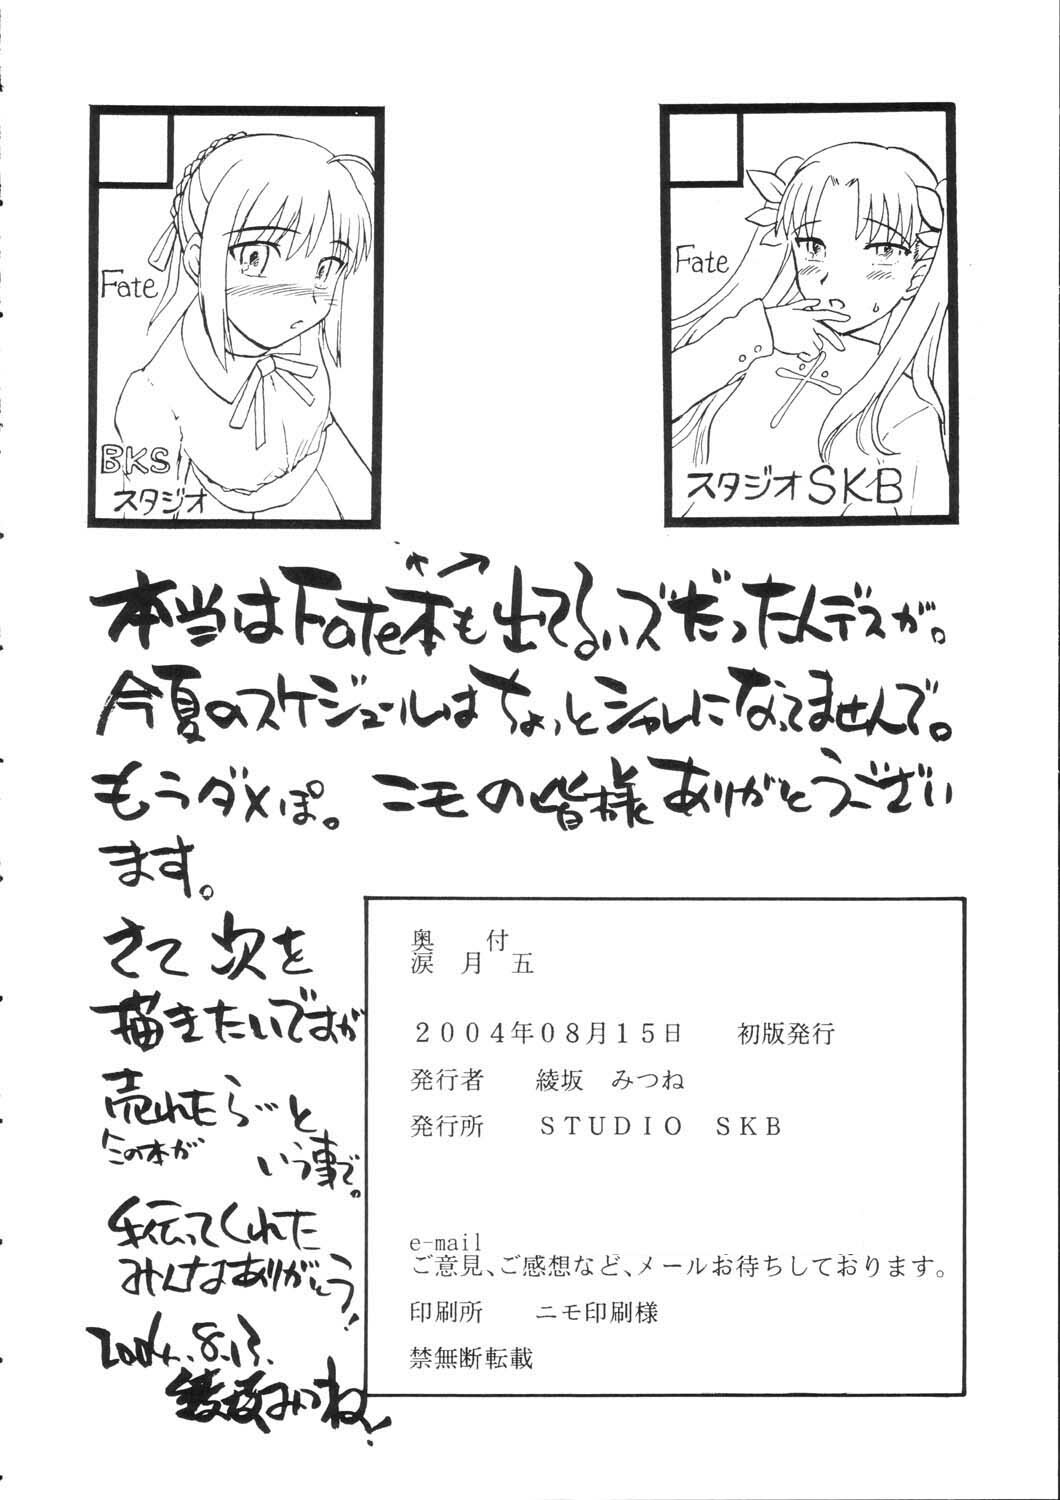 Fate
BKS
スタジオ
Fate
スタジオSKB
本当はFate本も出てるハズだったんデスが。
今夏のスケジュールはちょっとシャレになってませんで。
もうダメぽ。 ニモの皆様ありがとうござい
ます。
さて 次を
描きたいですが
売れたら…と
この本が
いう事で。
手伝ってくれた
みんなありがとう!
2004.8.13.
綾坂みつね!
奥 付
涙 月 五
2004年08月15日 初版発行
発行者 綾坂 みつね
発行所 STUDIO SKB
e-mail
ご意見、ご感想など、メールお待ちしております。
印刷所 ニモ印刷様
禁無断転載